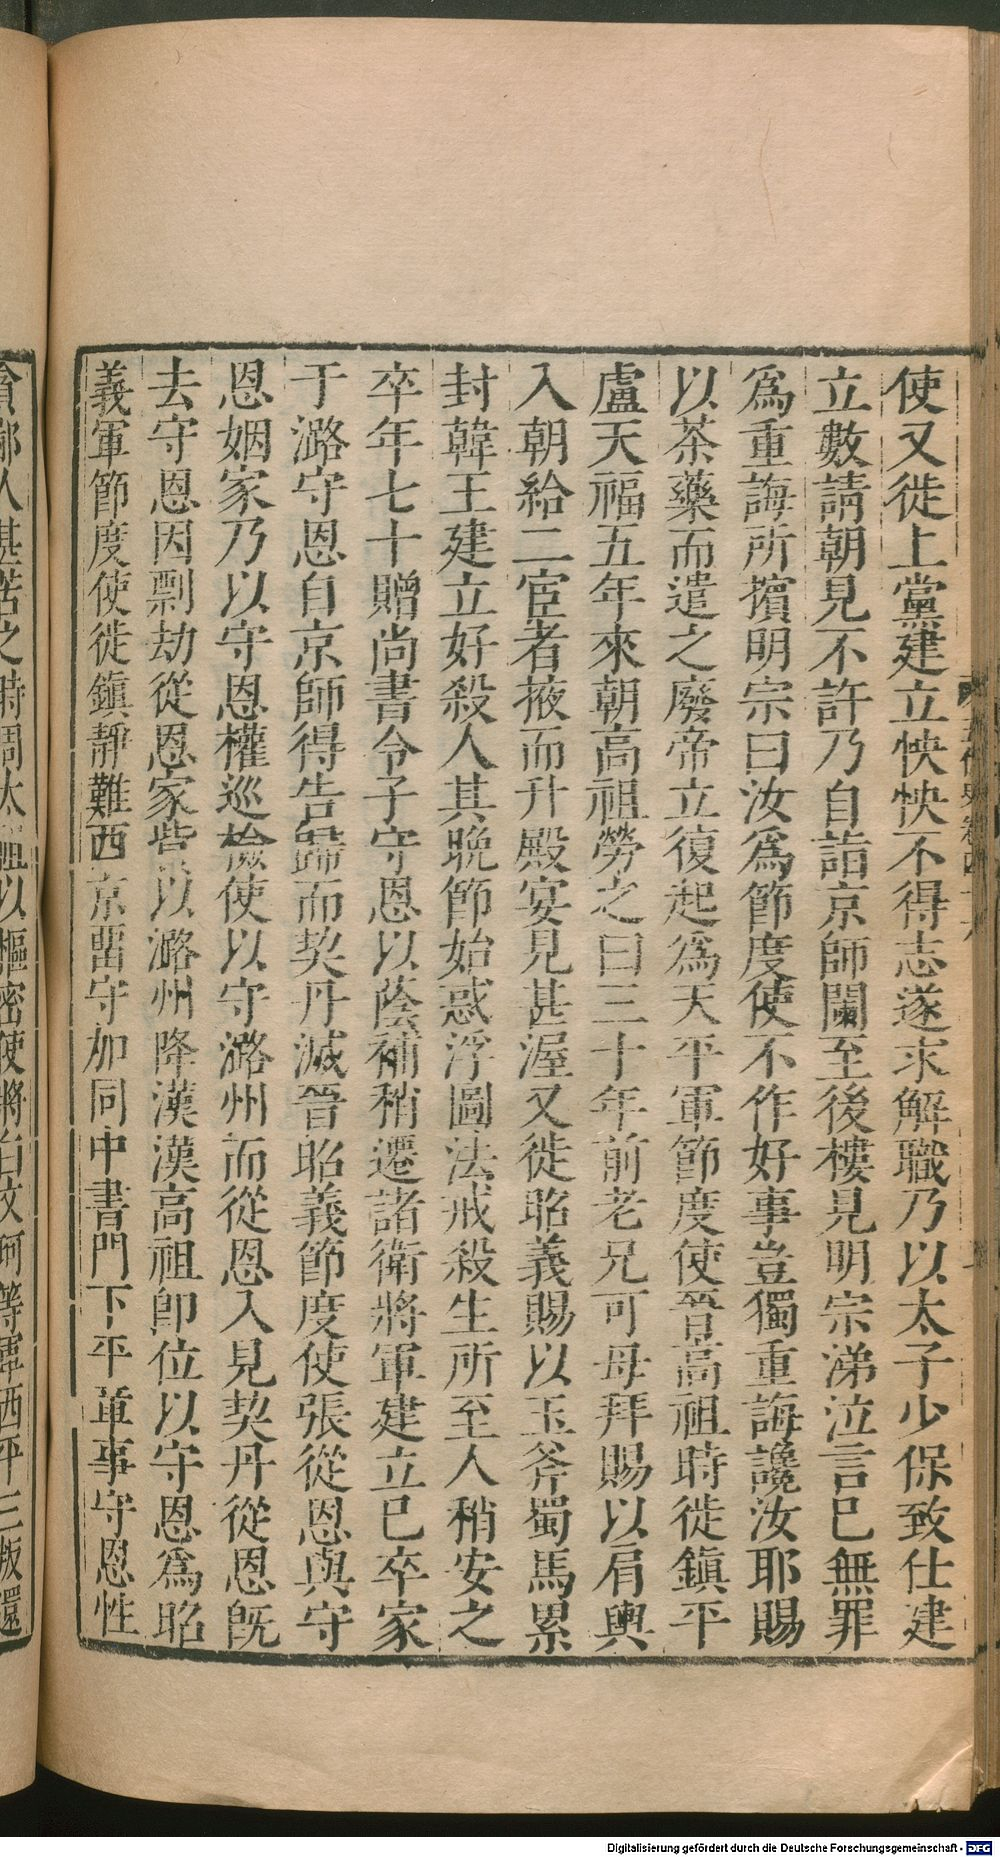 使又徙上黨建立怏怏不得志遂求解職乃以太子少保致仕建
立數請朝見不許乃自詣京師闌至後樓見明宗涕泣言已無罪
爲重誨所擯明宗曰汝爲節度使不作好事豈獨重誨讒汝耶賜
以茶藥而遣之廢帝立復起爲天平軍節度使晉高祖時徙鎮平
盧天福五年來朝高祖勞之曰三十年前老兄可毋拜賜以肩輿
入朝給二宦者掖而升殿宴見甚渥又徙昭義賜以玉斧蜀馬累
封韓王建立好殺人其晚節始惑浮圖法戒殺生所至人稍安之
卒年七十贈尚書令子守恩以蔭補稍遷諸衛將軍建立已卒家
于潞守恩自京師得告歸而契丹滅晉昭義節度使張從恩與守
恩姻家乃以守恩權巡檢使以守潞州而從恩入見契丹從恩既
去守恩因剽劫從恩家貲以潞州降漢漢高祖即位以守恩爲昭
義軍節度使徙鎮靜難西京留守加同中書門下平章事守恩性
貪鄙人甚苦之時周太祖以樞密使將白文珂等軍西平三叛還
Digitalisierung gefördert durch die Deutsche Forschungsgemeinschaft - DFG